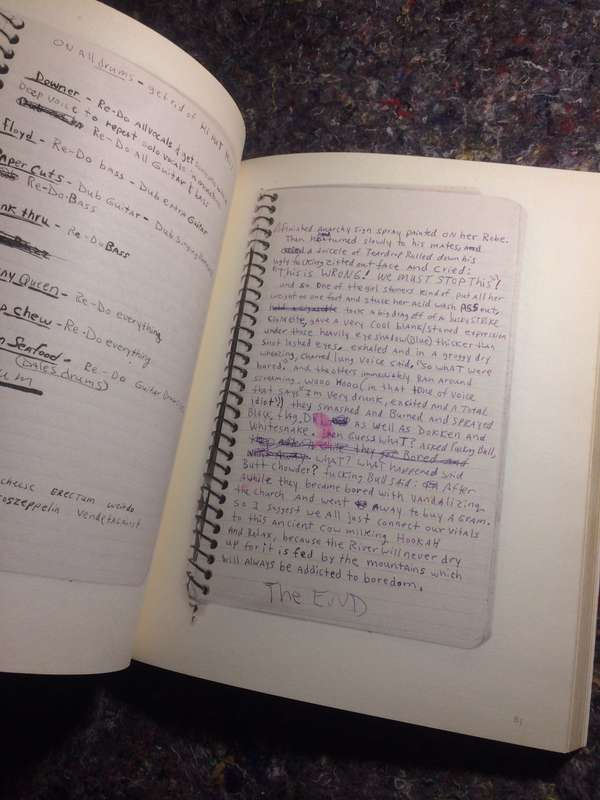 ON All drums - get rid of HI HAT
Downer - Re-Do All vocals & get
Deep voice to repeat solo vocals
Re Do All Guitar & bass
floyd - Re-Do bass - Dub extra Guitar
Paper Cuts - Dub Guitar - Dub singing
Re Do BASS
nk thru - Re-Do BASS
ny Queen - Re-Do everything
p chew - Re-Do everything
n Seafood - Re-Do Guitar
(DALES drums)
cheese ERECTUM weirdo
oszeppelin Vendetagainst
finished anarchy sign spray painted ON her Robe.
Then turned slowly to his mates, and
a Tricele of Teardrop Rulled down his
ugly fucking zitted out face and cried:
"This is WRONG! WE MUST STOP THIS"!
and so one of the girl stoners kind of put all her
weight on one foot and stuck her acid wash ASS out,
took a big drag off of a lucky STRIKE
gave a very cool blank/stoned expression
under those heavily eye shadow (Blue) thicker than
snot lashed eyes. exhaled and in a groggy dry
wheezing, charred lung voice said, "So WHAT were
bored. and the others immediately Ran around
screaming, wooo Hooo (in that tone of voice
that says "I'm very drunk, excited and A TOTAL
idiot)) they smashed and Burned and SPRAYED
Black, flag, D as well AS DOKKEN and
Whitesnake. Then Guess WHAT? Asked fucking Bull,
WHAT? WHAT happened said
Butt chowder? fucking Bull said: After
awhile they became bored with Vandalizing
the church and went Away to buy A GRAM.
So I suggest we all just connect our vitals
to this ancient cow milking HOOKAH
And Relax, because the River will never dry
up for it is fed by the mountains which
will always be addicted to boredom.
The END